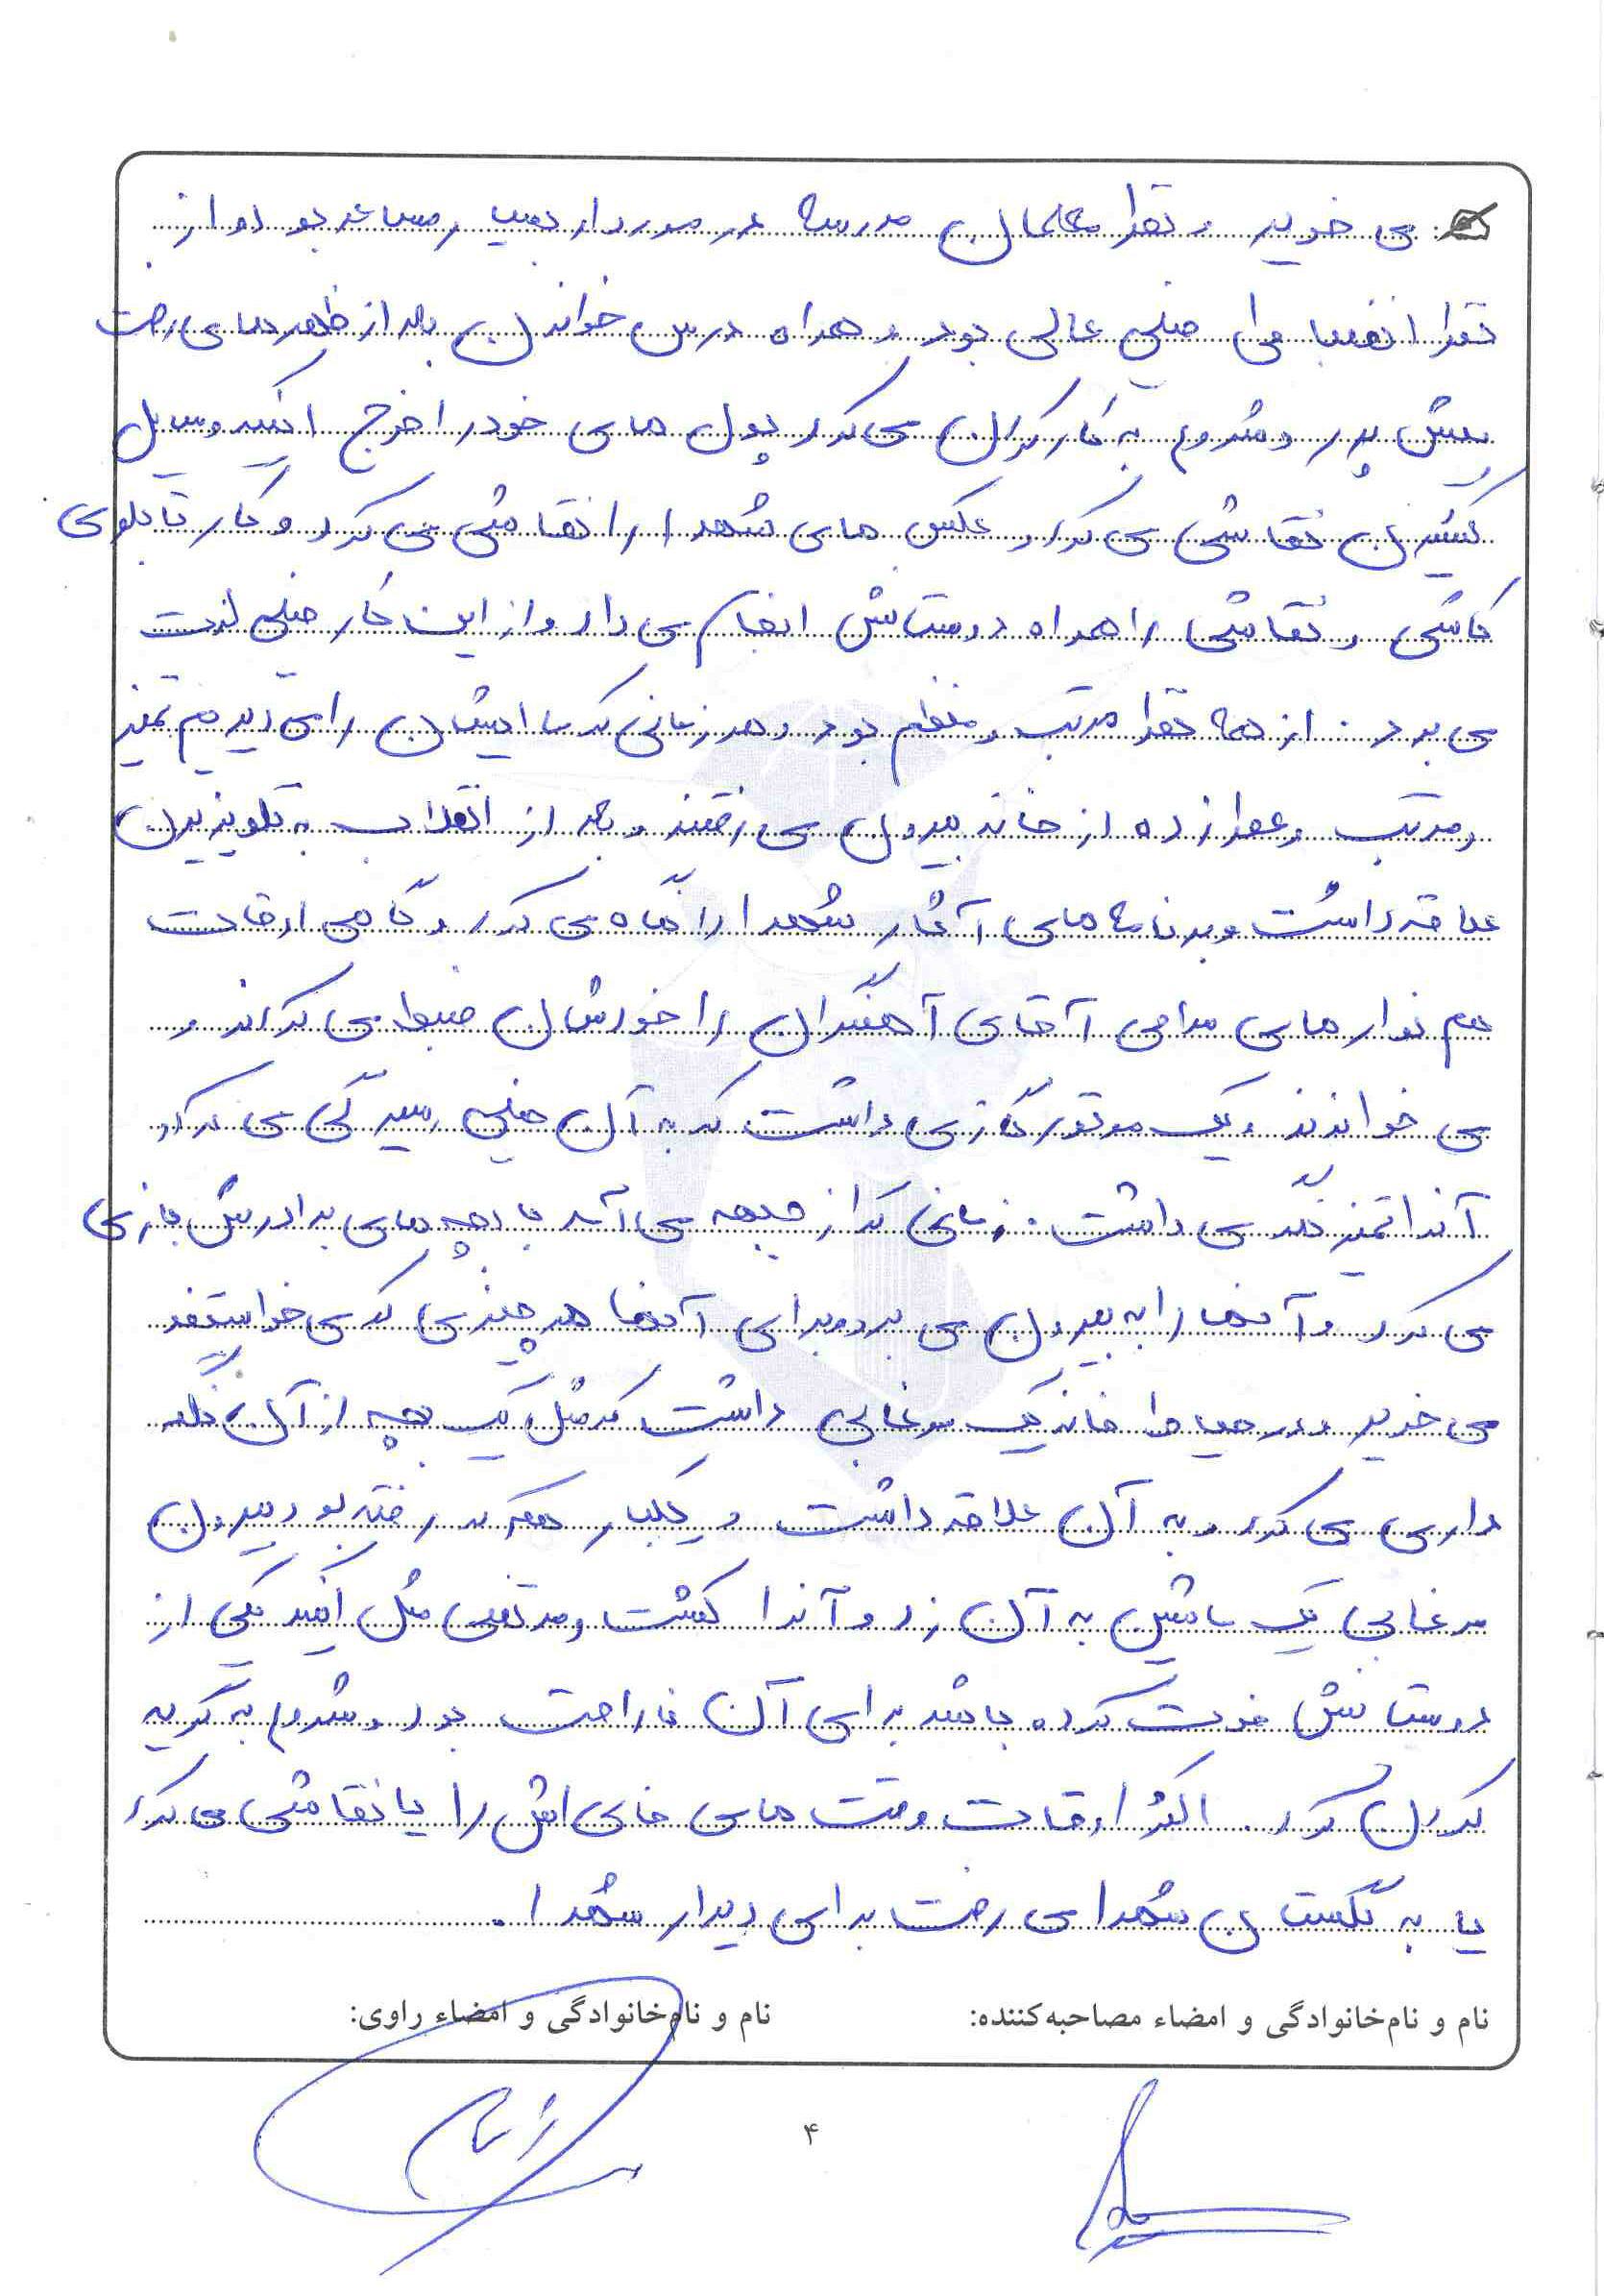 می خرید و نظر معلمان مدرسه در مورد او بسیار مساعد بود و از
نظر انضباطی خیلی عالی بود و همراه درس خواندن بعد از ظهر های رفت
پیش پدر و شروع به کار کردن می کرد پول های خود را خرج اینکه وسایل
کشیدن نقاشی می کرد و عکس های شهدا را نقاشی می کرد و کار تابلوی
کاشی و نقاشی را همراه دوستانش انجام می داد و از این کار خیلی لذت
می برد. از همه نظر مرتب و منظم بود و هر زمانی که ما ایشان را می دیدیم تمیز
و مرتب و عطر زده از خانه بیرون می رفتند و بعد از انقلاب به تلویزیون
علاقه داشت و برنامه های آثار شهدا را نگاه می کرد و گاهی اوقات
هم نوار های مداحی آقای آهنگران را خودشان ضبط می کردند و
می خواندند و یک موتور گازی داشت که به آن خیلی رسیدگی می کرد و
آنرا تمیز نگه می داشت. زمانی که از جبهه می آمد با بچه های برادرش بازی
می کرد و آنها را به بیرون می برد و برای آنها هر چیزی که می خواستند
می خرید و در حیاط خانه یک مرغابی داشت که مثل یک بچه از آن نگه
داری می کرد و به آن علاقه داشت و یکبار هم که رفته بود بیرون
مرغابی یک ماشین به آن زد و آنرا کشت و مرتضی مثل اینکه یکی از
دوستانش فوت کرده باشد برای آن ناراحت بود و شروع به گریه
کردن کرد. اکثر اوقات وقت های خالی اش را یا نقاشی می کرد
یا به گلستان شهدا می رفت برای دیدار شهدا.
نام و نام‌خانوادگی و امضاء مصاحبه‌کننده: نام و نام‌خانوادگی و امضاء راوی:
۴